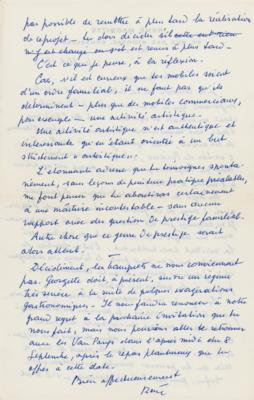 pas possible de remettre à plus tard la réalisation
de ce projet — tu dois décider si
n'y est changé ou s'il est remis à plus tard —
C'est ce que je pense, à la réflexion.
Car, s'il est curieux que tes mobiles soient
d'un ordre familial, il ne faut pas qu'ils
déterminent — plus que des mobiles commerciaux,
par exemple — une activité artistique.
Une activité artistique n'est authentique et
intéressante qu'en étant orientée à un but
strictement "artistique".
L'étonnante adresse que tu témoignes sponta-
nément, sans leçon de peinture pratique préalables,
me font penser que tu aboutiras certainement
à une maîtrise incontestable — sans aucun
rapport avec des question de prestige familial.
Autre chose que ce genre de prestige serait
alors atteint.
Décidément, les banquets ne nous conviennent
pas. Georgette doit, à présent, suivre un régime
très sévère à la suite de quelques exagérations
gastronomiques. Il nous faudra renoncer à notre
grand regret à la prochaine invitation que tu
nous fais, mais nous pourrions aller te retrouver
avec les Van Parys dans l'après midi du 8
Septembre, après le repas plantureux que tu
offres à cette date.
Bien affectueusement
René